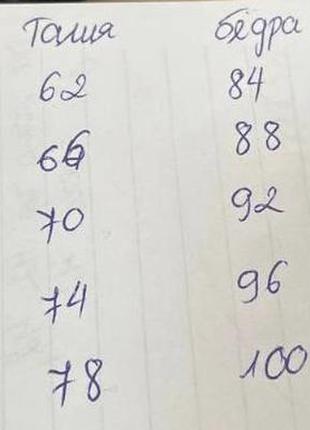 Талия бёдра
62 84
66 88
70 92
74 96
78 100